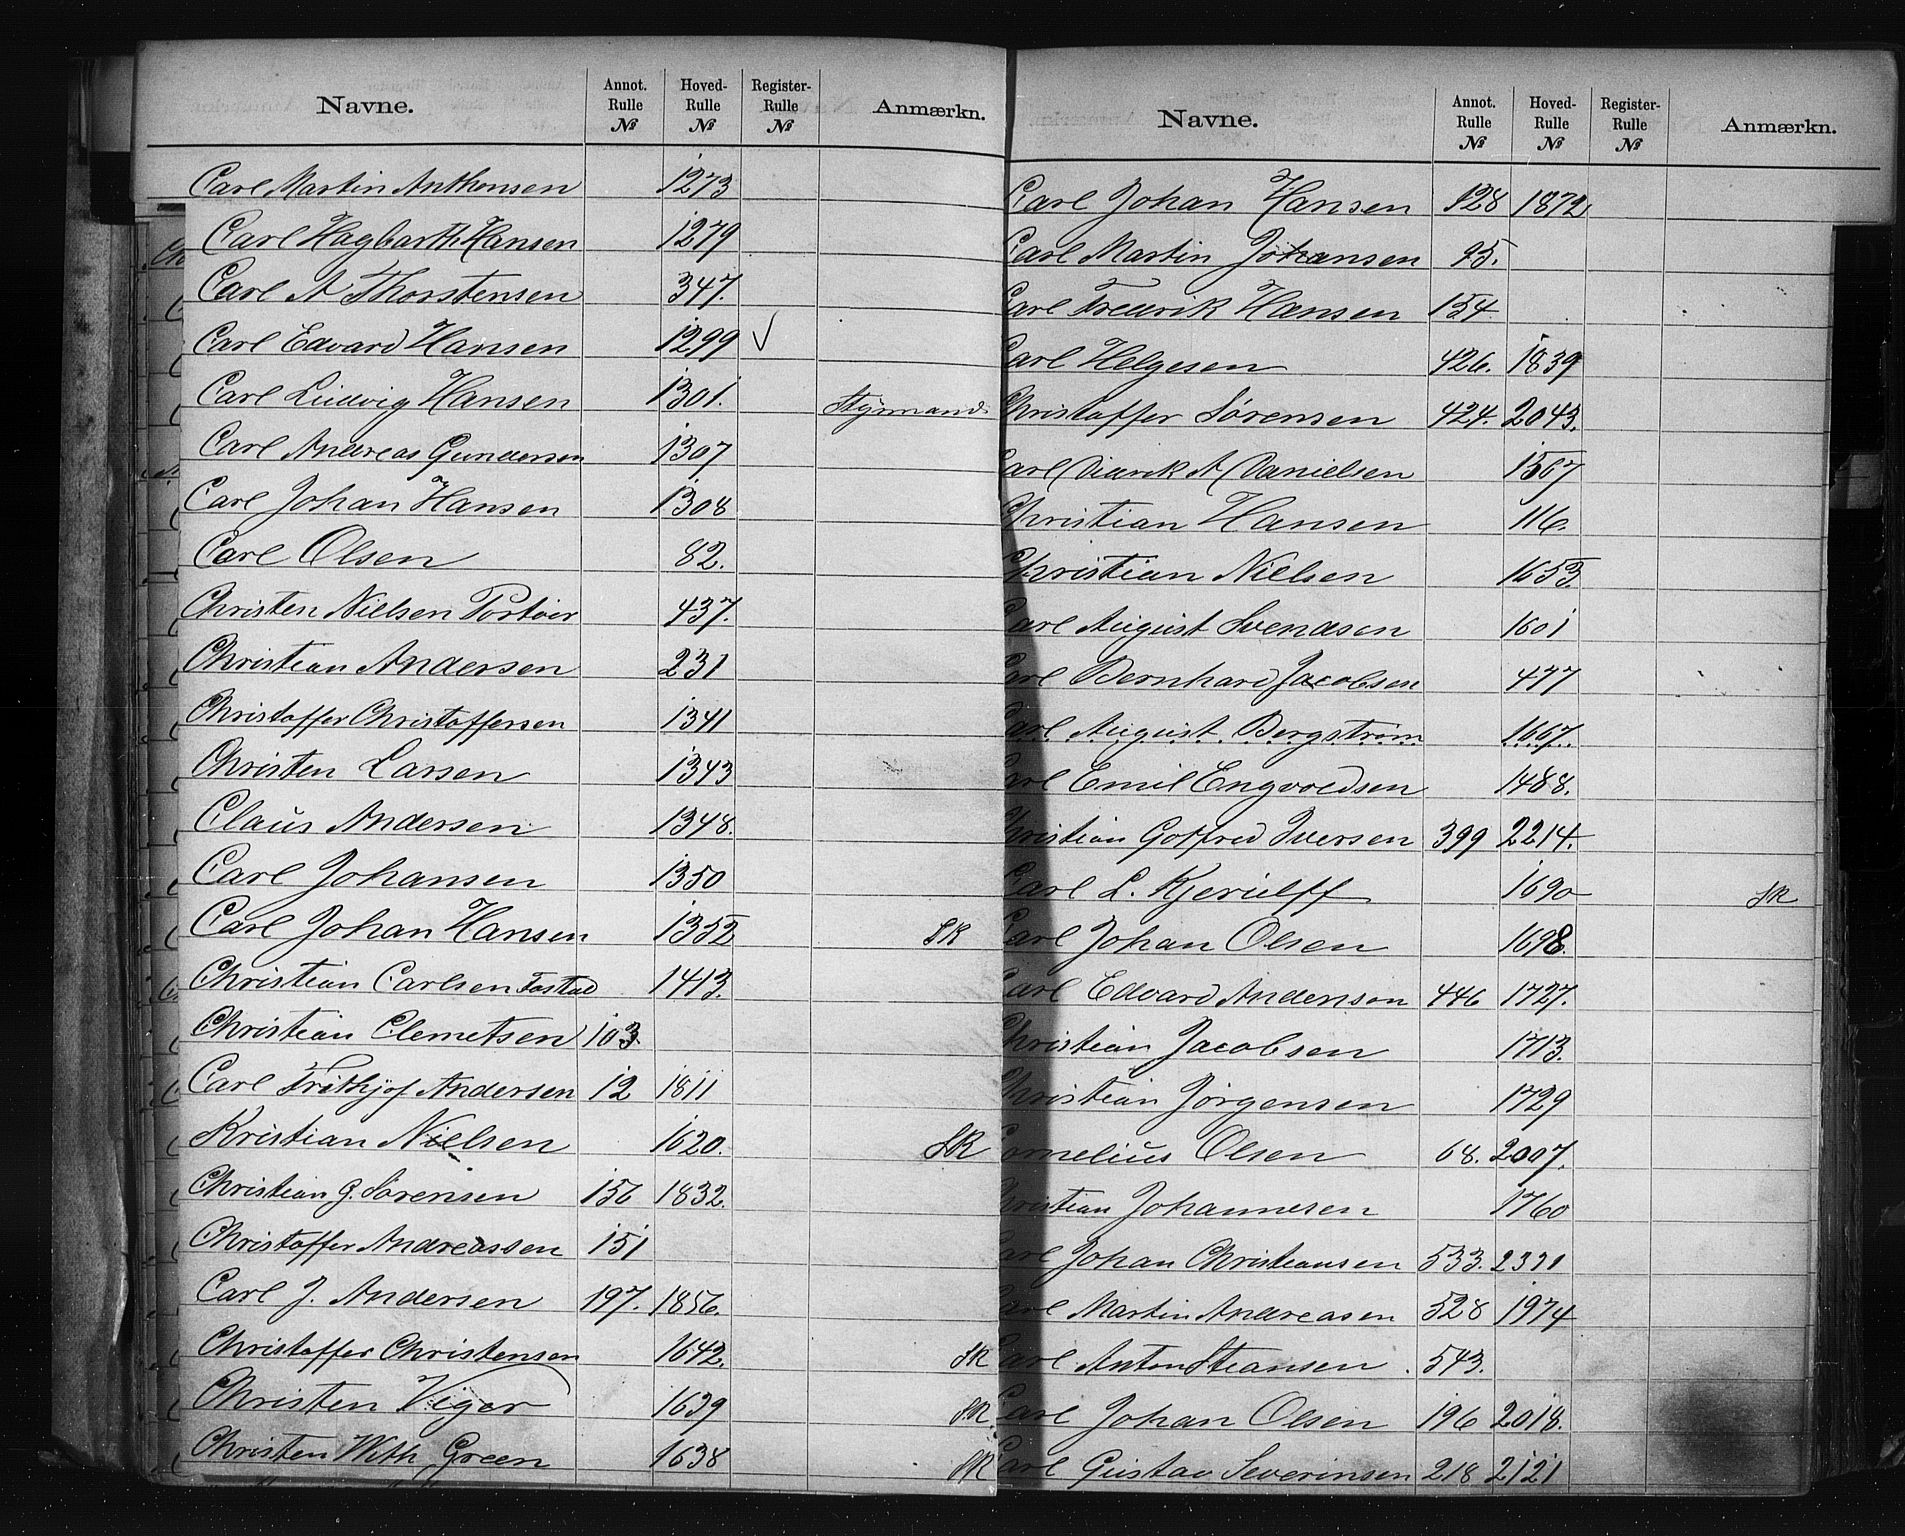 Navne. Annot. Rulle № Hoved- Rulle № Register- Rulle № Anmærkn.
Carl Martin Anthonsen 1273
Carl Hagbarth Hansen 1279
Carl A Thorstensen 347.
Carl Edvard Hansen 1299 √
Carl Ludvig Hansen 1301. Styrmand
Carl Andreas Gundersen 1307
Carl Johan Hansen 1308
Carl Olsen 82.
Christen Nielsen 437.
Christian Andersen 231
Christoffer Christoffersen 1341
Christen Larsen 1343
Claus Andersen 1348.
Carl Johansen 1350
Carl Johan Hansen 1352 SR
Christian Carlsen Fostad 1413.
Christian Clemetsen 103.
Carl Frithjof Andersen 12 1811
Kristian Nielsen 1620. SR
Christian G. Sørensen 156 1832.
Christoffer Andreassen 151
Carl J. Andersen 197. 1856.
Christoffer Christensen 1642. SR
Christen Viger 1639 SR
Christen With Green 1638 SR
Navne. Annot. Rulle № Hoved- Rulle № Register- Rulle № Anmærkn.
Carl Johan Hansen 128 1872
Carl Martin Johansen 95.
Carl Fredrik Hansen 154
Carl Helgesen 426. 1839
Christoffer Sørensen 424. 2043.
Carl Didrik A Danielsen 1567
Christian Hansen 116.
Christian Nielsen 1653.
Carl August Svendsen 1601
Carl Bernhard Jacobsen 477
Carl August Bergstrøm 1667.
Carl Emil Engvoldsen 1488.
Christian Gotfred Iversen 399 2214.
Carl L. Kjerulff 1690 SR
Carl Johan Olsen 1698.
Carl Edvard Andersen 446 1727.
Christian Jacobsen 1713.
Christian Jørgensen 1729
Cornelius Olsen 68. 2007.
Christian Johannesen 1760
Carl Johan Christiansen 533. 2331
Carl Martin Andreasen 528 1974
Carl Anton Steansen 543.
Carl Johan Olsen 196 2018.
Carl Gustav Severinsen 218 2121